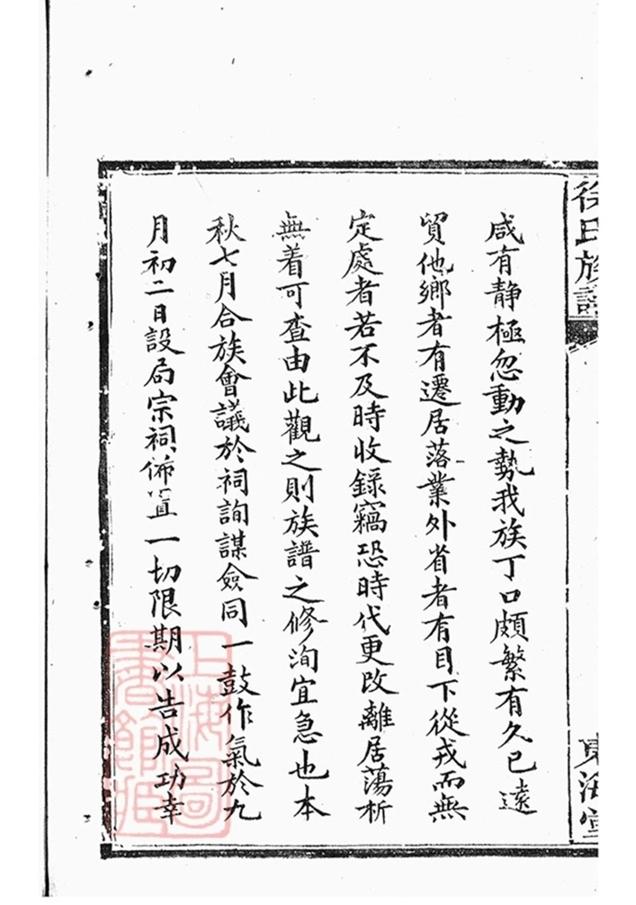 徐氏族譜
東海堂
咸有静極忽動之勢我族丁口頗繁有久已遠
貿他鄉者有遷居落業外省者有目下從戎而無
定處者若不及時收録竊恐時代更改離居蕩析
無着可查由此觀之則族譜之修洵宜急也本
秋七月合族會議於祠詢謀僉同一鼓作氣於九
月初二日設局宗祠佈置一切限期以告成功幸
上海圖
書館藏